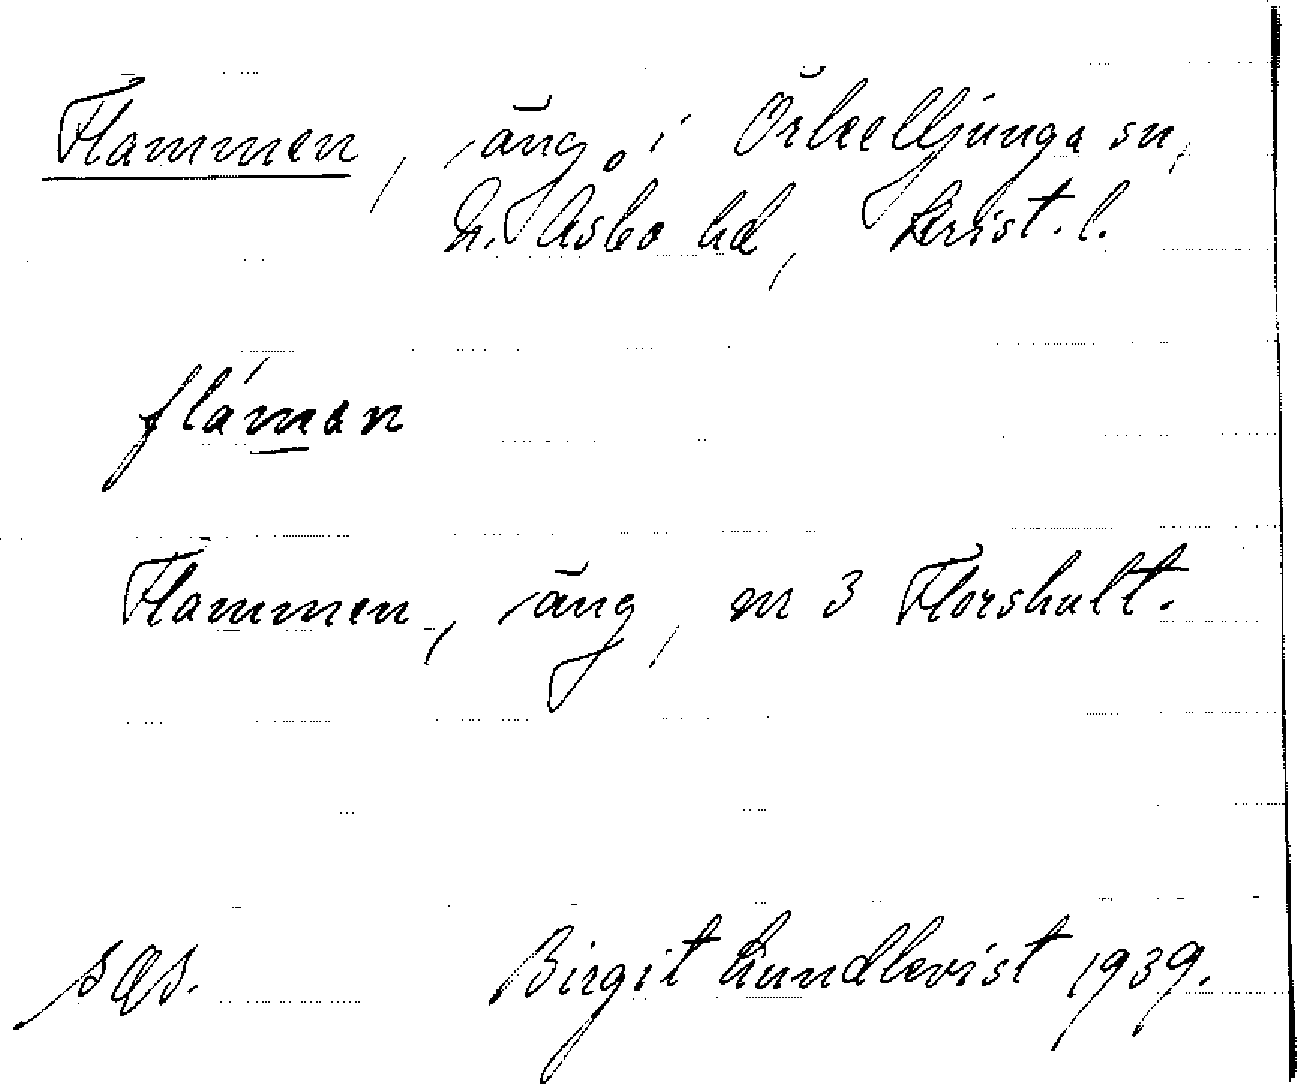 Flammen, äng, i Örkelljunga sn,
N. Åsbo hd, Krist. l.
flámən
Flammen, äng, m 3 Florshult.
sgs. Birgit Lundkvist 1939.